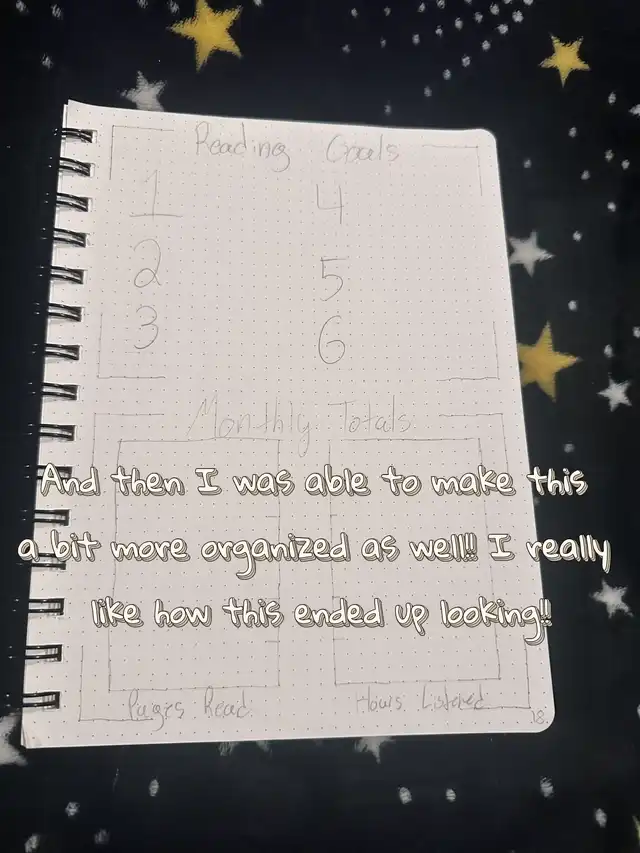 Reading Goals
1 4
2 5
3 6
Monthly Totals
And then I was able to make this
a bit more organized as well!! I really
like how this ended up looking!!
Pages Read Hours Listened
18.